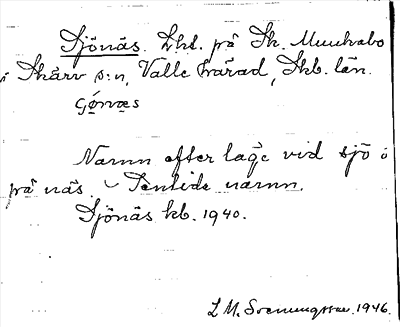 Sjönäs. Lht. på Sk. Munkabo
i Skärv s:n, Valle härad, Skb. län.
Namn efter läge vid sjö o
på näs. Sentida namn.
Sjönäs kb. 1940.
L M. Svenungsson. 1946.